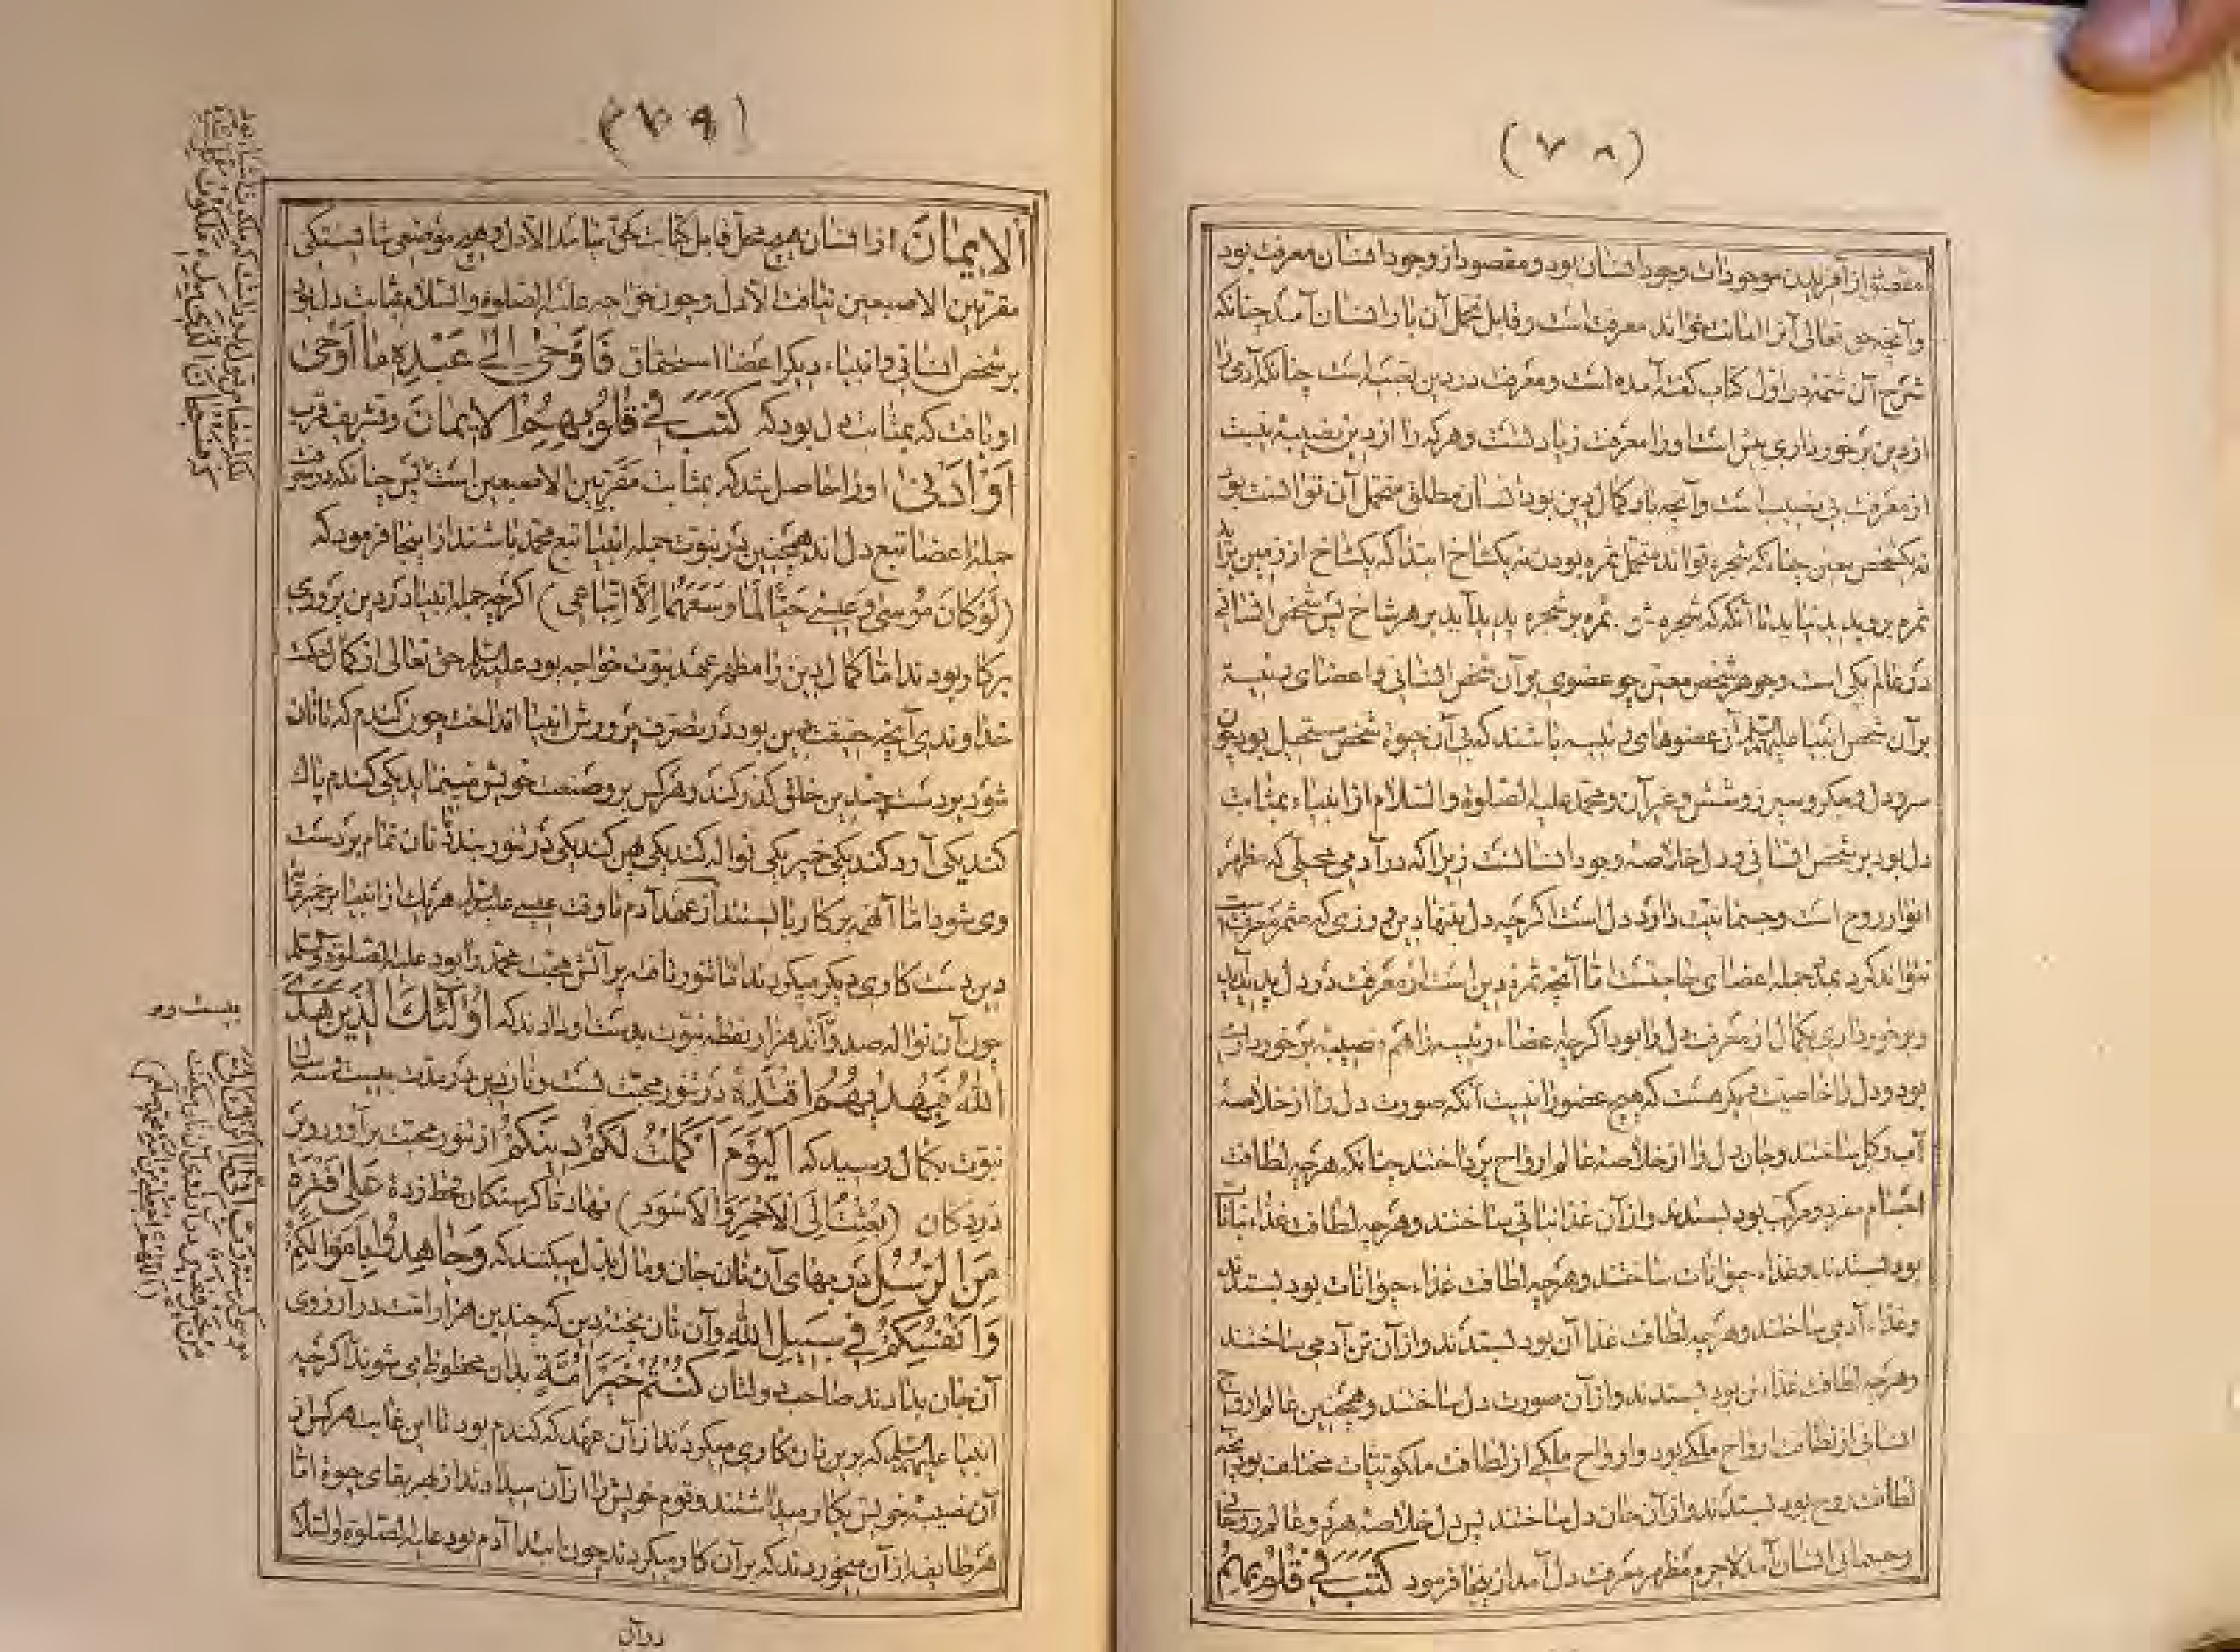 (۷۸)
مقصود از آفریدن موجودات وجود انسان بود و مقصود از وجود انسان معرفت بود
و آنچه حق تعالی آنرا امانت خواند معرفت است و قابل تحمل آن بار انسان آمد چنانکه
شرح آن شمه در اول کتاب گفته آمده است و معرفت در دین تعبیه است چنانکه آدمی را
از دین برخورداری بیش است او را معرفت زیادتست و هرکه را از دین نصیبه نیست
از معرفت بی نصیب است و آنچه بار کمال دین بود انسان مطلق متحمل آن توانست بود
نه یکشخص معین چنانکه شجره تواند متحمل ثمره بودن نه یکشاخ ابتدا که یکشاخ از زمین برآید
ثمره بر وی پدید نیاید تا آنگه که شجره شود ثمره بر شجره پدید آید بر هر شاخ پس شخص انسانی
در عالم یکی است وجود هر شخص معین چو عضوی بر آن شخص انسانی و اعضای رئیسه
بر آن شخص انبیا علیهم السلم آن عضوهای رئیسه باشند که بی آن حیوة شخص مستحیل بود چون
سر و دل و جگر و سپرز و شش و غیر آن و محمد علیه الصلوة والسلام از انبیاء بمثابت
دل بود بر شخص انسانی و دل خلاصه وجود انسانست زیرا که در آدمی محلی که مظهر
انوار روح است و جسمانیت دارد دل است اگرچه دل بتنها دین ورزی که مثمر معرفت است
نتواند کرد بمدد جمله اعضای حاجتست اما آنچه ثمره دین است از معرفت در دل پدید آید
و برخورداری بکمال از معرفت دل را بود اگرچه اعضاء رئیسه را هم نصیبه برخورداری
بود و دل را خاصیت دیگر هست که هیچ عضو را نیست آنکه صورت دل را از خلاصه
آب و گل ساختند و جان دل را از خلاصه عالم ارواح پرداختند چنانکه هرچه لطافت
اجسام مفرد و مرکب بود بستدند و از آن غذا نباتی ساختند و هرچه لطافت غذاء نباتات
بود بستدند و غذاء حیوانات ساختند و هرچه لطافت غذاء حیوانات بود بستدند
و غذاء آدمی ساختند و هرچه لطافت غذا آن بود بستدند و از آن تن آدمی ساختند
و هرچه لطافت غذاء تن بود بستدند و از آن صورت دل ساختند و همچنین عالم ارواح
انسانی از لطافت ارواح ملکی بود و ارواح ملکی از لطافت ملکوتیات مختلف بود آنچه
لطافت روح بود بستدند و از آن جان دل ساختند پس دل خلاصه هر دو عالم روحانی
و جسمانی انسان آمد لاجرم مظهر معرفت دل آمد از ینجا فرمود کَتَبَ فی قُلُوبِهِمُ
(۷۹)
الایمانَ از انسان هیچ محل قابل کتابت حق نیامد الا دل و هیچ موضعی شایستگی
مقر بین الاصبعین نیافت الا دل و چون خواجه علیه الصلوة والسلام بمثابت دل بود
بر شخص انسانی و انبیاء دیگر اعضا استحقاق فَاَوْحی اِلی عَبْدِهِ ما اَوْحی
او یافت که بمثابت دل بود که کَتَبَ فی قُلُوبِهِمُ الایمانَ و تشریف قرب
اَوْ اَدْنی او را حاصل شد که بمثابت مقر بین الاصبعین است پس چنانکه در معرفت
جمله اعضا تبع دل اند همچنین در نبوت جمله انبیا تبع محمد باشند از اینجا فرمود که
(لَوْ کانَ مُوسی وَ عیسی حَیّاً لَما وَسِعَهُما اِلّا اتِّباعی) اگرچه جمله انبیا در دین پروری
بر کار بودند اما کمال دین را مظهر عهد نبوت خواجه بود علیه السلم حق تعالی از کمال حکمت
خداوندی آنچه حقیقت دین بود در تصرف پرورش انبیا انداخت چون گندم که تا نان
شود بر دست چندین خلق گذر کند و هرکس برو صنعت خویش مینماید یکی گندم پاک
کند یکی آرد کند یکی خمیر یکی نواله کند یکی پهن کند یکی در تنور بندد تا نان تمام بر دست
وی شود اما آنهمه بر کار بایستند از عهد آدم تا وقت عیسی علیه السلم هریک از انبیا بر خمیر مایه
دین دستکاری دیگر میکردند اما تنور تافته پر آتش محبت محمد را بود علیه الصلوة و السلم
چون آن نواله صد و اند هزار نقطه نبوت بدست او دادند که اُولئِکَ الَّذینَ هَدَی
اللّهُ فَبِهُدیهُمُ اقْتَدِهْ در تنور محبت بست و نان دین در مدت بیست و سه سال
نبوت بکمال رسید که اَلْیَوْمَ اَکْمَلْتُ لَکُمْ دینَکُمْ از تنور محبت برآورد و بر
در دکان (بُعِثْتُ اِلَی الاَحْمَرِ وَ الاَسْوَدِ) نهاد تا گرسنگان قحط زده عَلی فَتْرَةٍ
مِنَ الرُّسُلِ در بهای آن نان جان و مال بذل میکنند که وَجاهِدُوا بِاَمْوالِکُمْ
وَ اَنْفُسِکُمْ فی سَبیلِ اللّهِ و آن نان پخته دین که چندین هزار امت در آرزوی
آن جان بدادند صاحب دولتان کُنْتُمْ خَیْرَ اُمَّةٍ بدان محظوظ می شوند اگرچه
انبیا علیهم السلم که برین نان کاری میکردند از آن عهد که گندم بود تا این غایت هرکس از
آن نصیب خویش بکار میداشتند و قوم خویش را از آن میدادند از بهر بقای حیوة اما
هر طایفه از آن میخوردند که بر آن کار میکردند چون ابتدا آدم بود علیه الصلوة والسلام
بیست و م
در آن